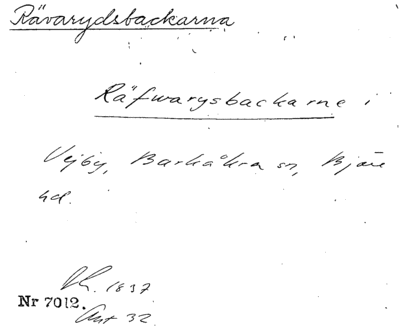 Rävarydsbackarna
Räfwarysbackarne i
Vejby, Barkåkra sn, Bjäre
hd.
1837
Nr 7012.
Akt 32